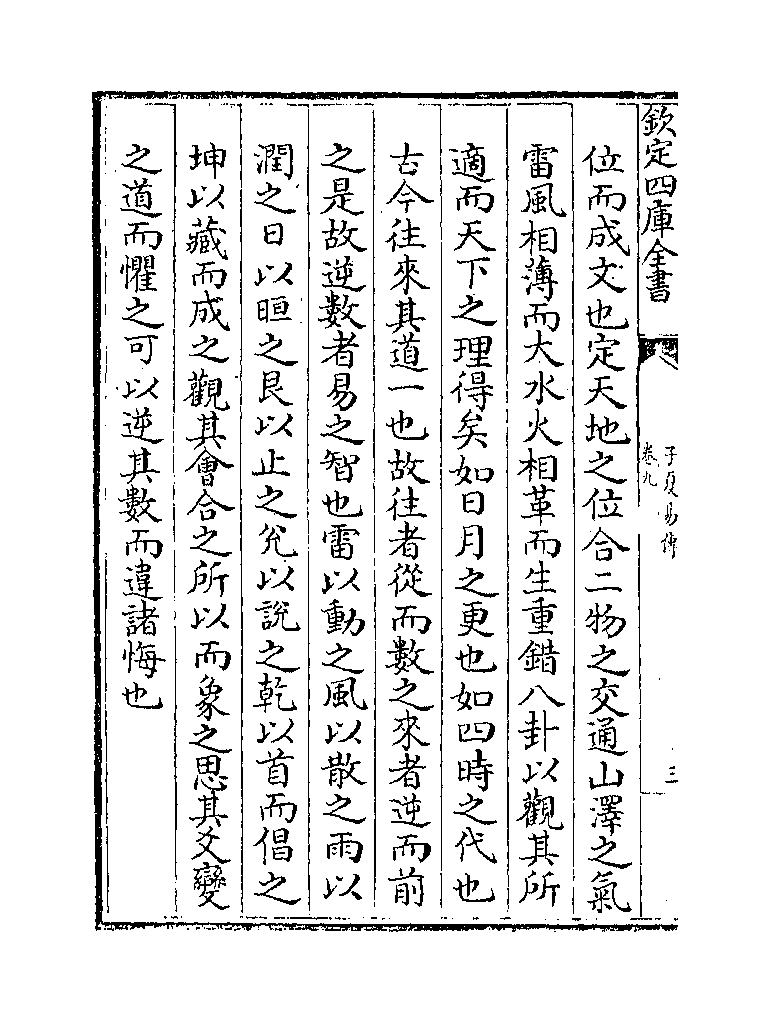 欽定四庫全書
子夏易傳
卷九
三
位而成文也定天地之位合二物之交通山澤之氣
雷風相薄而大水火相革而生重錯八卦以觀其所
適而天下之理得矣如日月之更也如四時之代也
古今往來其道一也故往者從而數之來者逆而前
之是故逆數者易之智也雷以動之風以散之雨以
潤之日以晅之艮以止之兊以說之乾以首而倡之
坤以藏而成之觀其會合之所以而象之思其爻變
之道而懼之可以逆其數而違諸悔也